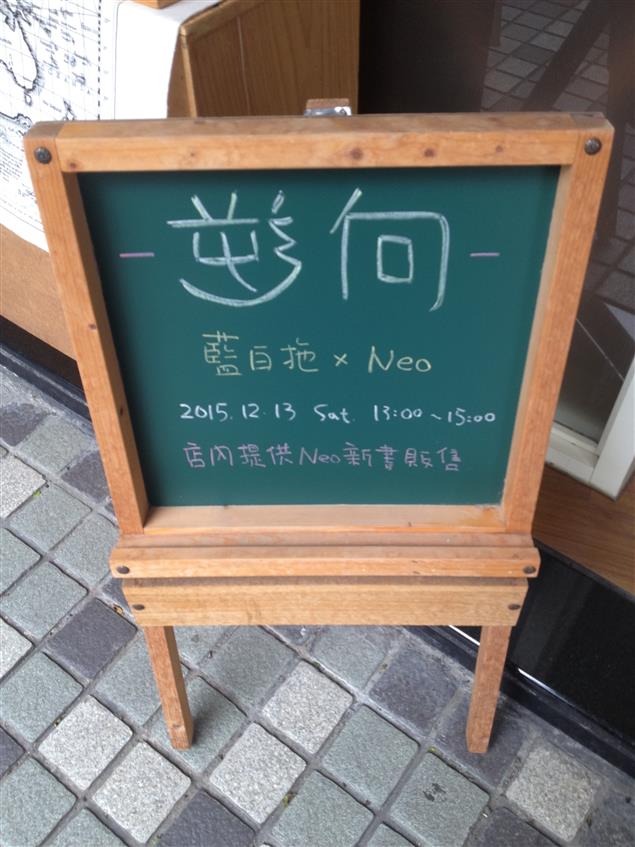 - 逆向 -
藍白拖 × Neo
2015.12.13 Sat. 13:00~15:00
店內提供Neo新書販售